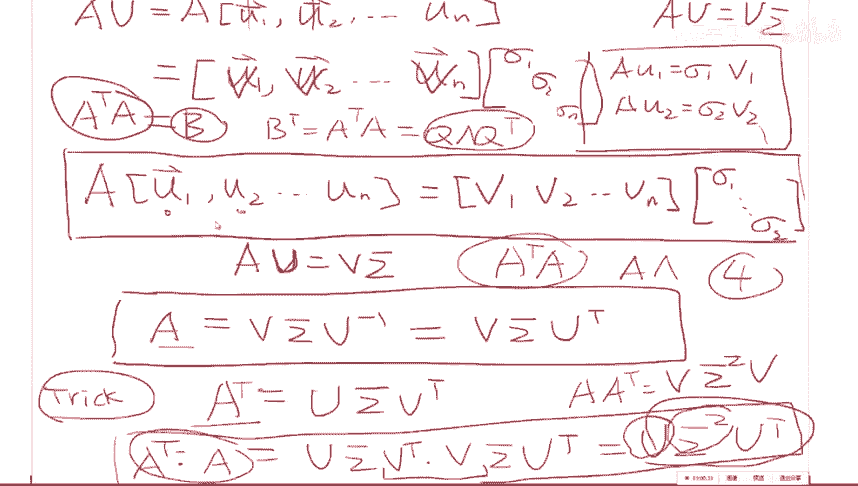 AU = A[u⃗₁, u⃗₂, ... uₙ] AU = VΣ
= [V⃗₁, V⃗₂ ... V⃗ₙ] [σ₁ σ₂ σₙ] Au₁ = σ₁ V₁
Au₂ = σ₂ V₂
AᵀA = B Bᵀ = AᵀA = QΛQᵀ
A[u⃗₁, u₂ ... uₙ] = [V₁ V₂ ... Vₙ] [σ₁ ⋱ σ₂]
AU = VΣ AᵀA AΛ 4
A = VΣU⁻¹ = VΣUᵀ
Trick Aᵀ = UΣVᵀ AAᵀ = VΣ²V
Aᵀ·A = UΣVᵀ·VΣUᵀ = UΣ²Uᵀ